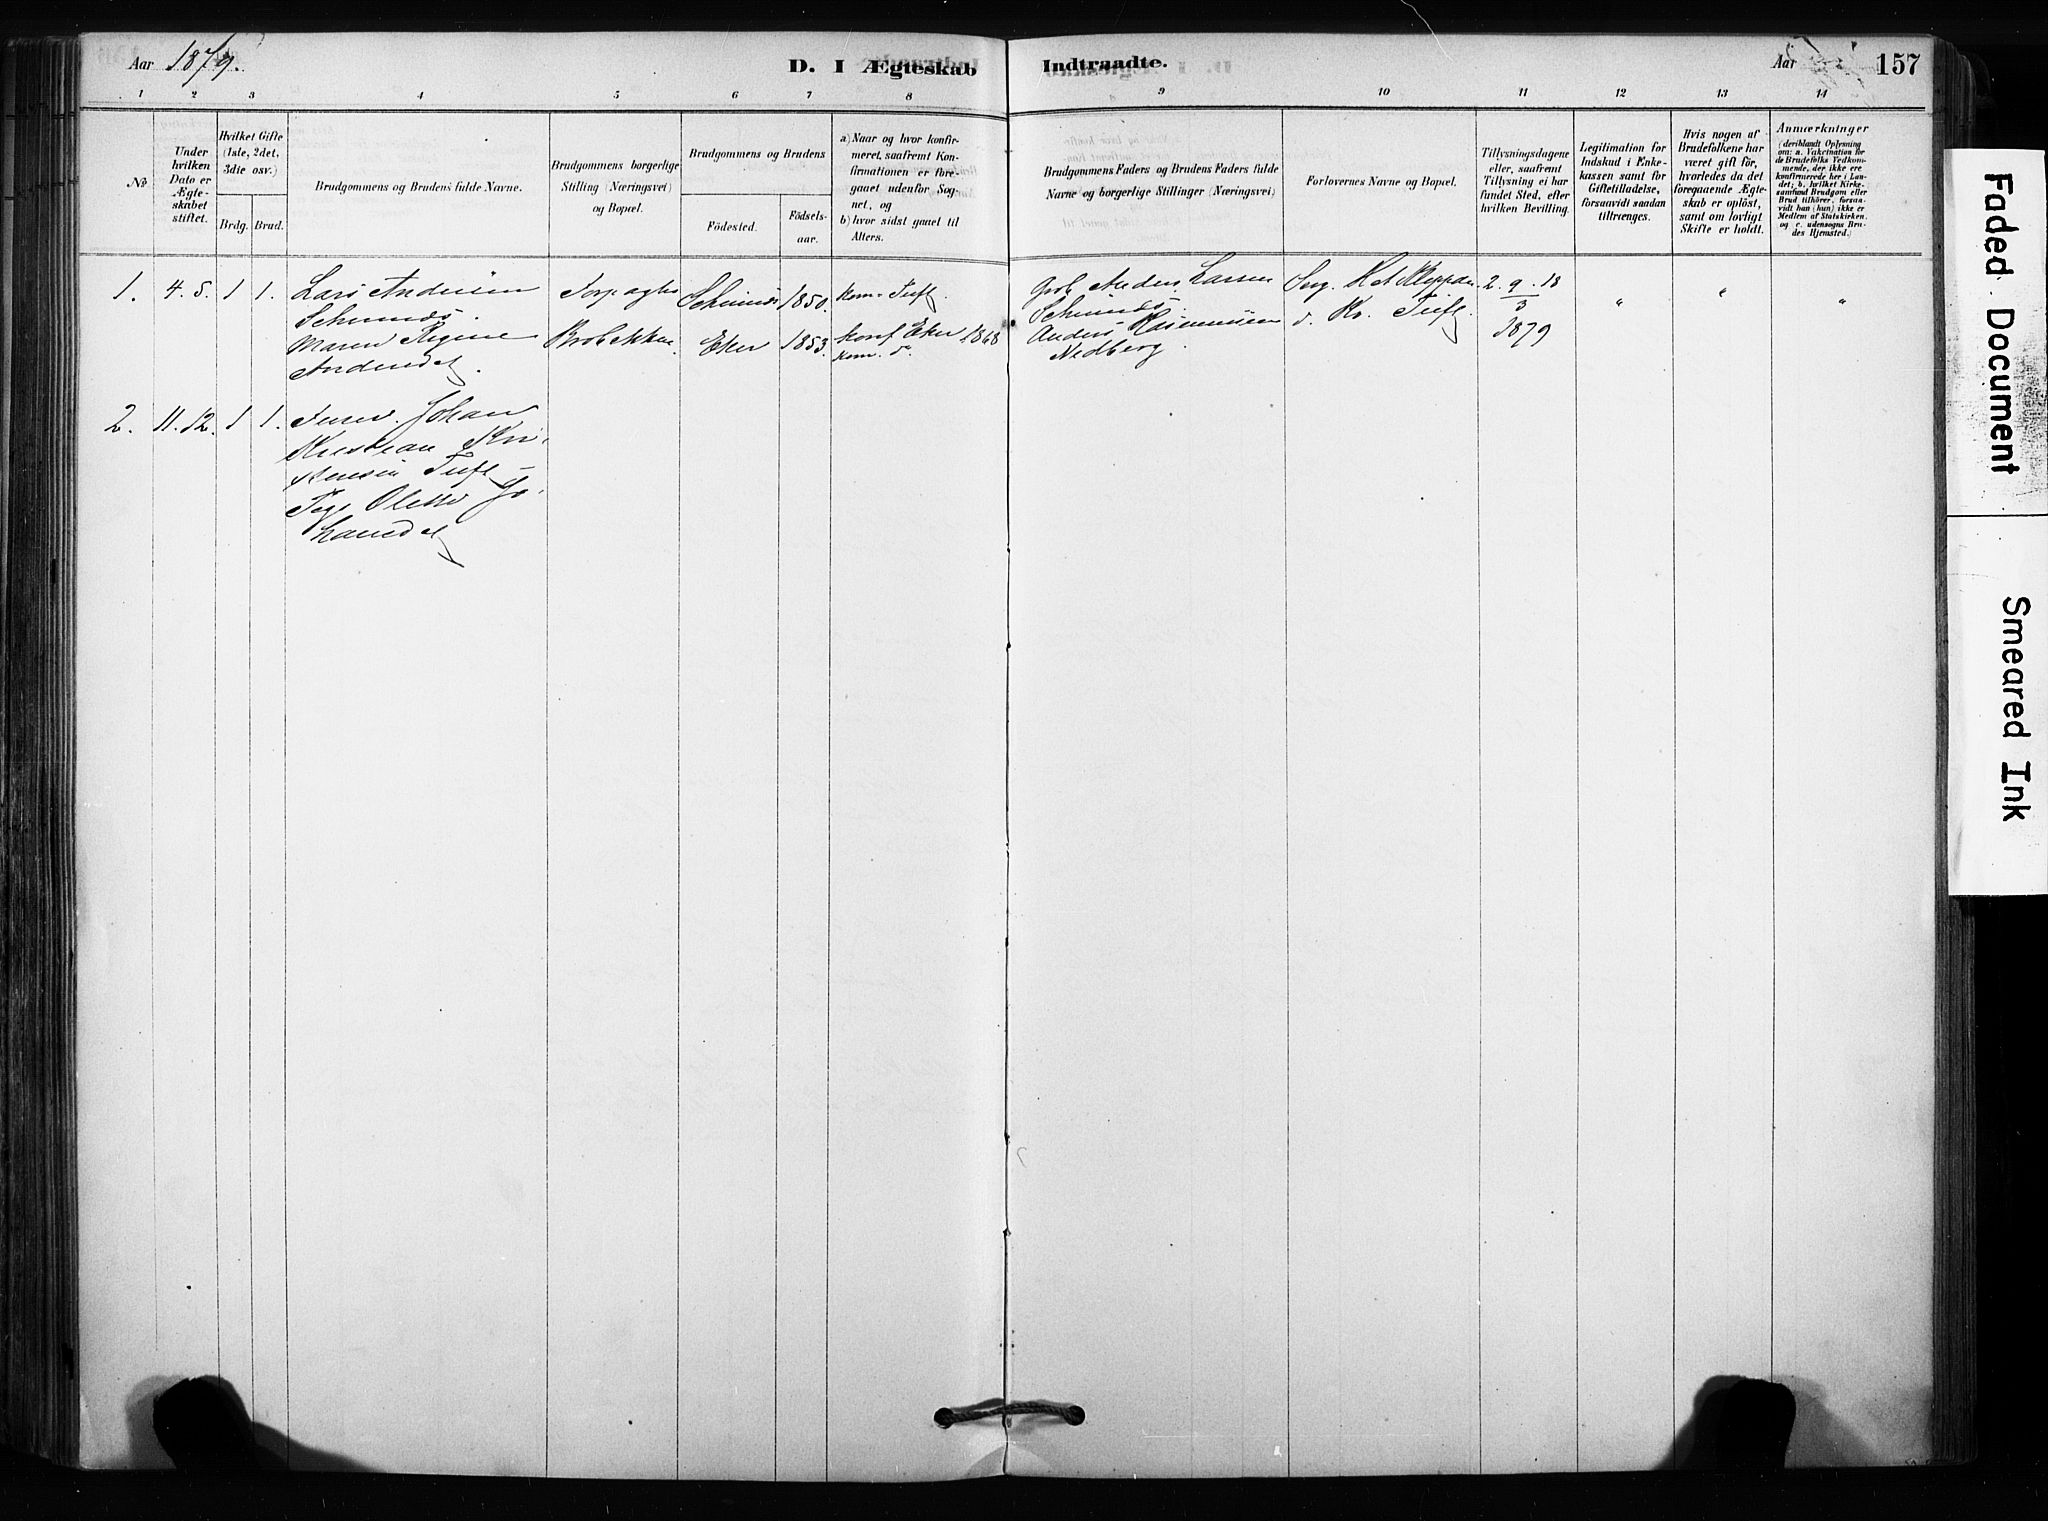 Aar 1879.
D. I Ægteskab
Indtraadte.
Aar
157
1 2 3 4 5 6 7 8 9 10 11 12 13 14
No
Under
hvilken
Dato er
Ægte-
skabet
stiftet.
Hvilket Gifte
(1ste, 2det,
3die osv.)
Brdg. Brud.
Brudgommens og Brudens fulde Navne.
Brudgommens borgerlige
Stilling (Næringsvei)
og Bopæl.
Brudgommens og Brudens
Födested.
Födsels-
aar.
a) Naar og hvor konfir-
meret, saafremt Kon-
firmationen er fore-
gaaet udenfor Sog-
net, og
b) hvor sidst gaaet til
Alters.
Brudgommens Faders og Brudens Faders fulde
Navne og borgerlige Stillinger (Næringsvei)
Forlovernes Navne og Bopæl.
Tillysningsdagene
eller, saafremt
Tillysning ei har
fundet Sted, efter
hvilken Bevilling.
Legitimation for
Indskud i Enke-
kassen samt for
Giftetilladelse,
forsaavidt saadan
tiltrænges.
Hvis nogen af
Brudefolkene har
været gift för,
hvorledes da det
foregaaende Ægte-
skab er oplöst,
samt om lovligt
Skifte er holdt.
Anmærkninger
(deriblandt Oplysning
om: a. Vakcination for
de Brudefolks Vedkom-
mende, der ikke ere
konfirmerede her i Lan-
det; b. hvilket Kirke-
samfund Brudgom eller
Brud tilhörer, forsaa-
vidt han (hun) ikke er
Medlem af Statskirken,
og c. udensogns Bru-
des Hjemsted.)
1. 4. 5. 1 1. Lars Andersen
1850. kom. Tuft.
Anders Larsen
2. 9. 18
3
1879
" " "
Maren Regine
Andersdt.
Eker 1853. konf Eker 1868
kom. d.
Anders Rasmussen
Nedberg.
d. Kr. Tuft.
2. 11. 12. 1 1. Johan
Kristian Kri-
stensen Tuft
Olette Jo-
hansdt
Faded Document
Smeared Ink